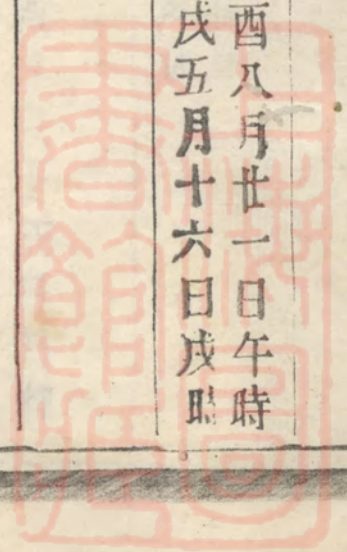 酉八月廿一日午時
戌五月十六日戌時